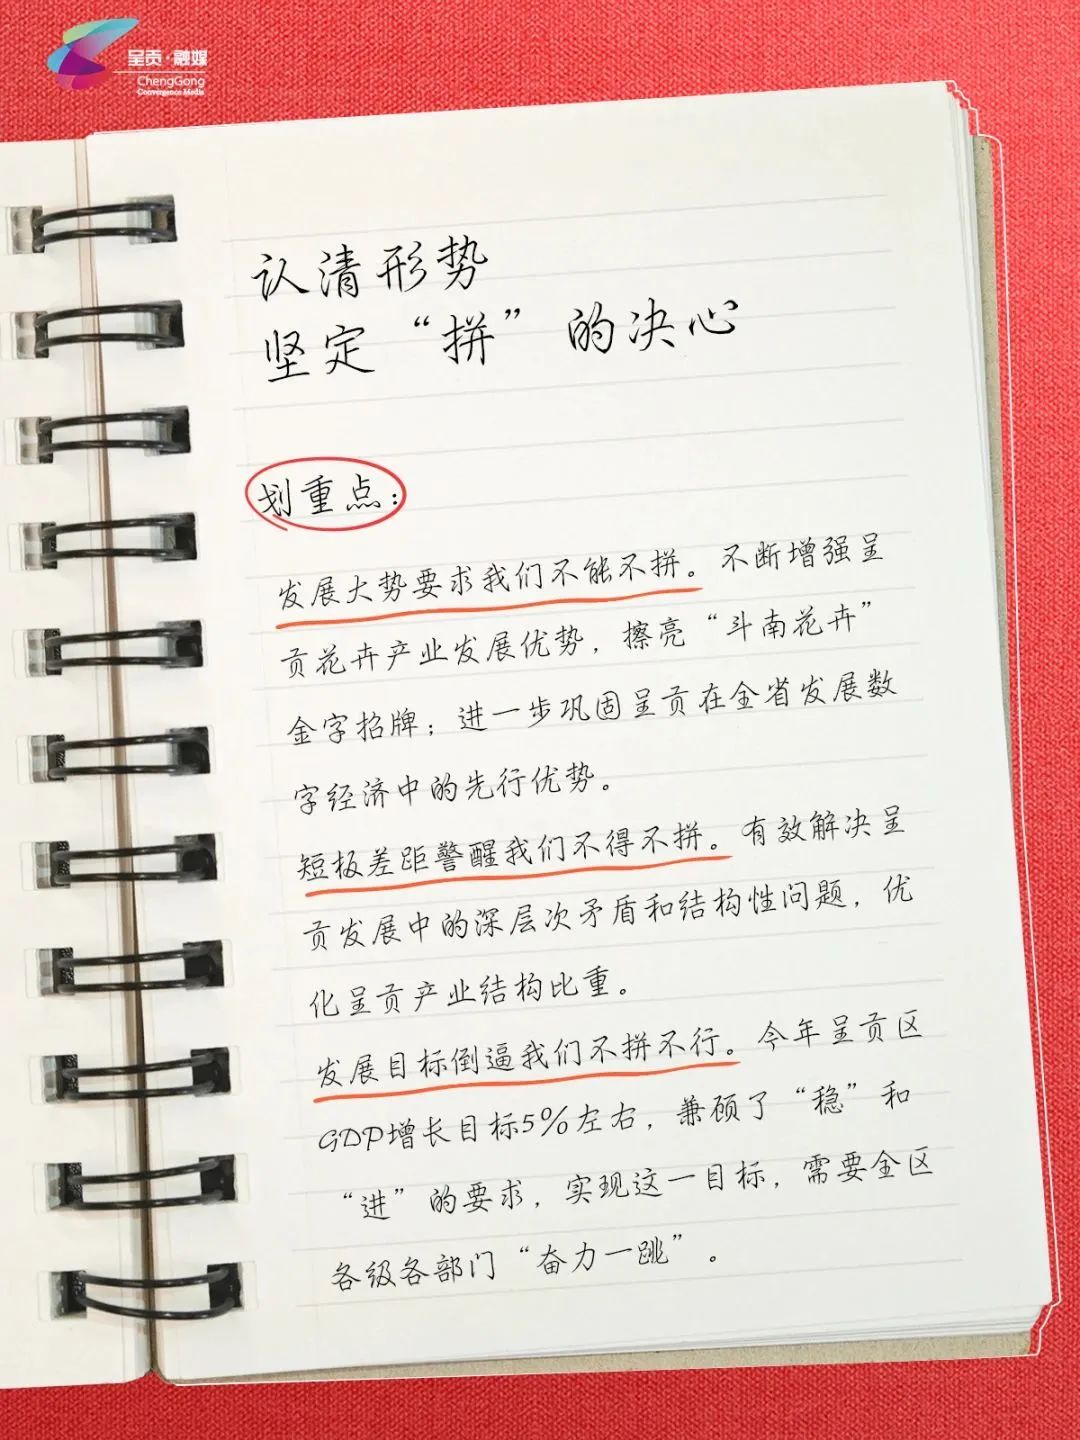 呈贡·融媒
ChengGong
Convergence Media
认清形势
坚定“拼”的决心
划重点：
发展大势要求我们不能不拼。不断增强呈
贡花卉产业发展优势，擦亮“斗南花卉”
金字招牌；进一步巩固呈贡在全省发展数
字经济中的先行优势。
短板差距警醒我们不得不拼。有效解决呈
贡发展中的深层次矛盾和结构性问题，优
化呈贡产业结构比重。
发展目标倒逼我们不拼不行。今年呈贡区
GDP增长目标5%左右，兼硕了“稳”和
“进”的要求，实现这一目标，需要全区
各级各部门“奋力一跳”。